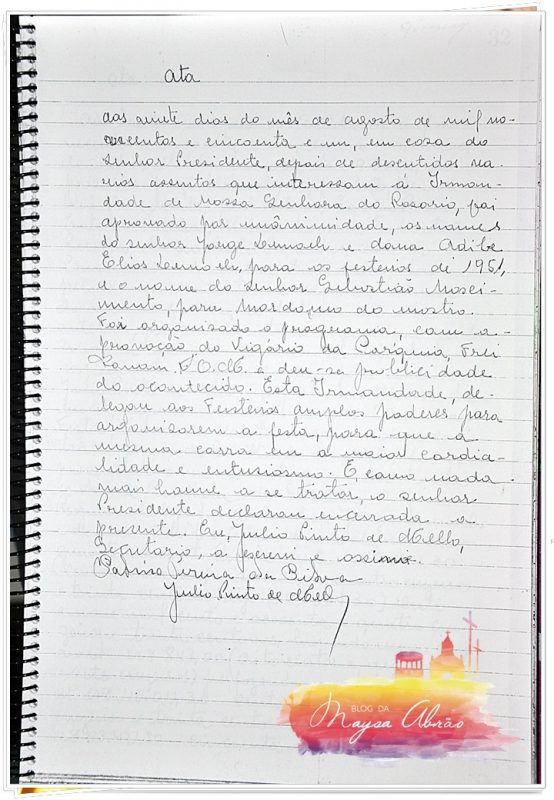 32
Ata
aos vinte dias do mês de agosto de mil no-
vecentos e cincoenta e um, em casa do
Senhor Presidente, depois de descutidos va-
rios assuntos que interessam á Irman-
dade de Nossa Senhora do Rosario, foi
aprovado por unânimidade, os nomes
do senhor Jorge e dona Adibe
Elias para os festeiros de 1951,
e o nome do Senhor Sebastião Nasci-
mento, para Mordomo do mastro.
Foi organizado o programa, com a a-
provação do Vigário da Paróquia, Frei
O.M. e deu-se publicidade
do acontecido. Esta Irmandade, de-
legou aos Festeiros amplos poderes para
organisarem a festa, para que a
mesma corra em a maior cordia-
lidade e entusiasmo. E, como nada
mais houve a se tratar, o senhor
Presidente declarou encerrada a
presente. Eu, Julio Pinto de Mello,
Secretario, a escrevi e assino.
Pereira da Silva
Julio Pinto de Mello
BLOG DA
Maysa Abrão